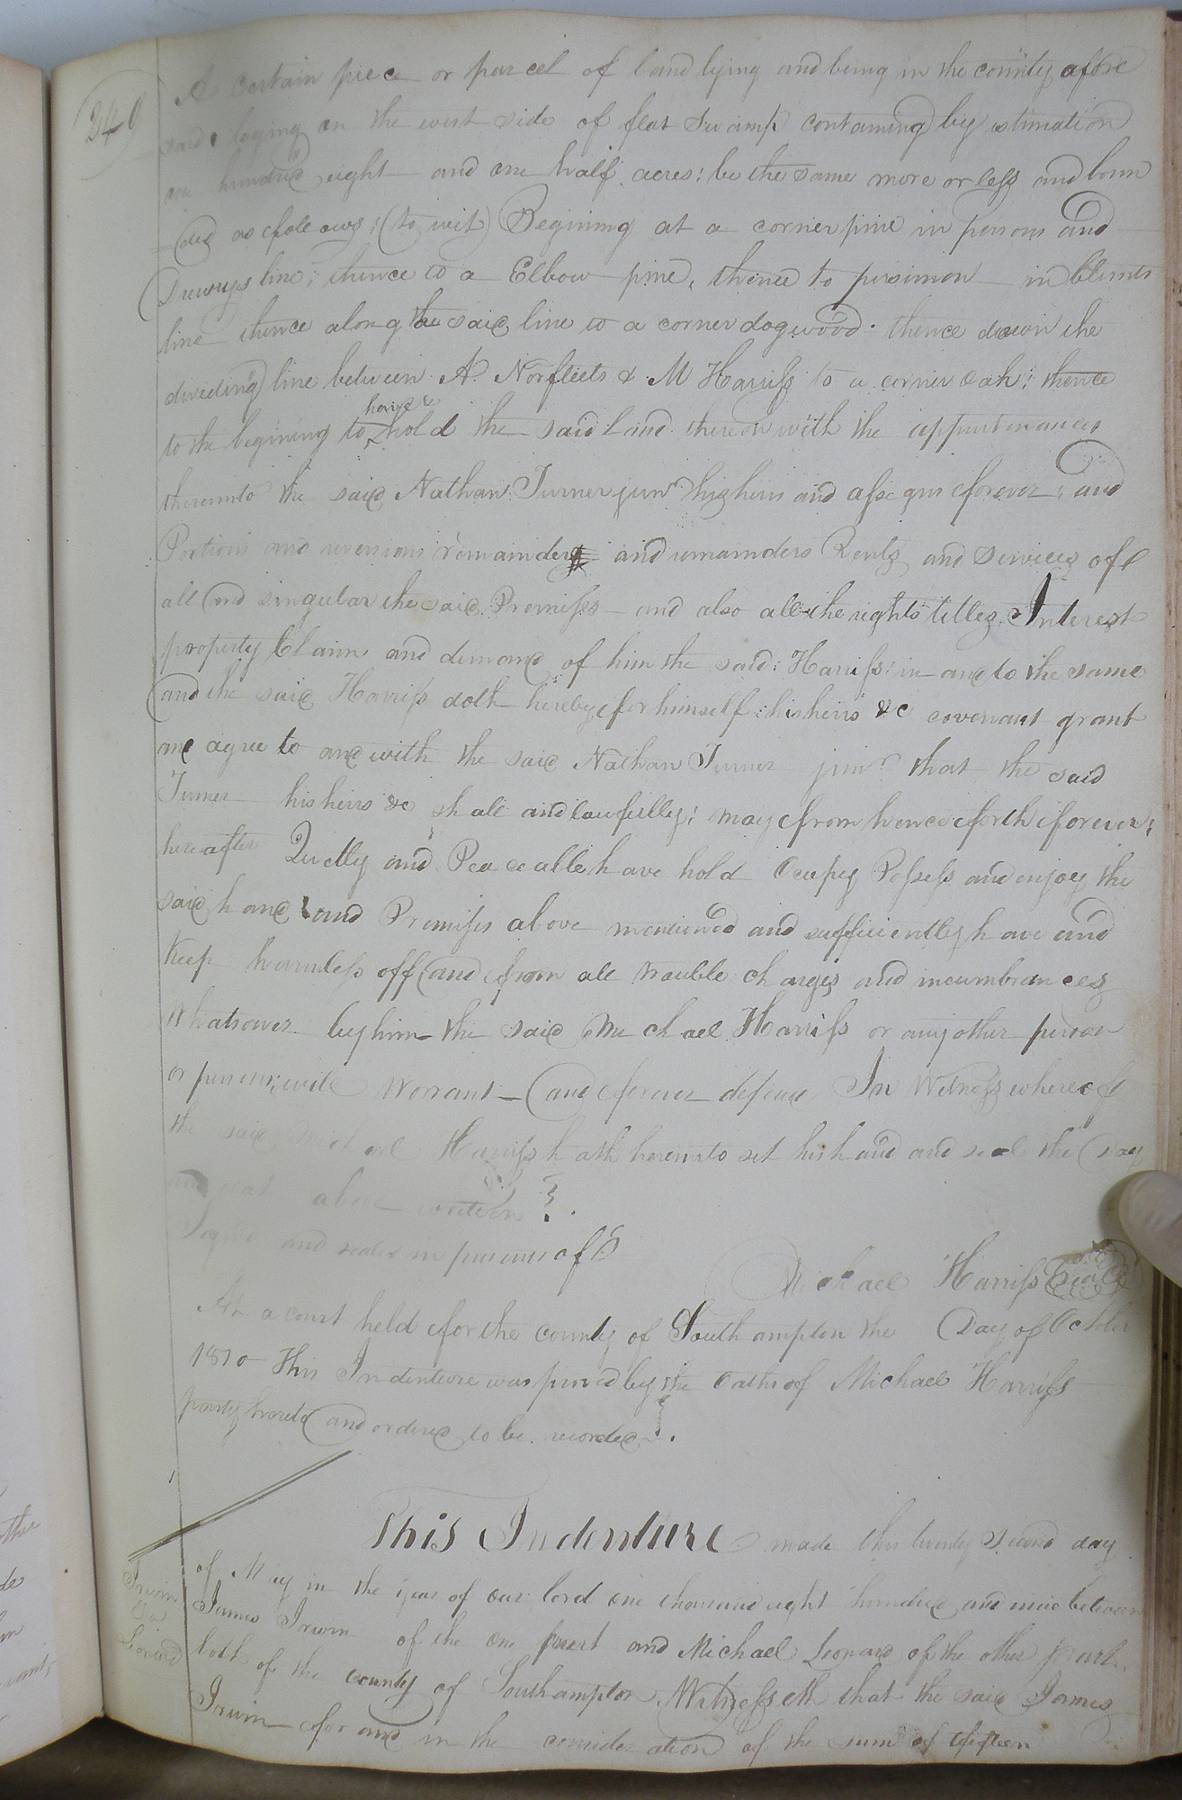 240
A certain piece or parcel of land lying and being in the county afore
said laying on the west side of flat Swamp containing by estimation
one hundred eight and one half acres: be the same more or less and boun
ded as follows; (to wit) Begining at a corner pine in persons and
Drewrys line; thence to a Elbow pine, thence to persimon in Blunts
line thence along the said line to a corner dogwood. thence down the
dividing line between A. Norfleets & M Harriss to a corner oak; thence
have &
to the begining to hold the said land thereon with the appurtenances
thereunto the said Nathan Turner junr his heirs and assigns forever; and
Portions and reversions remainders and remainders Rents and Services off
all and singular the said Premises and also all the rights titles Interest
property Claim and demand of him the said: Harriss: in and to the same
and the said Harriss doth hereby for himself: his heirs &c covenant grant
and agree to and with the said Nathan Turner junr that the said
Turner his heirs &c shall and lawfully; may from henceforth forever;
hereafter Quietly and Peaceable have hold Ocupy Possess and enjoy the
said hand and Premises above mentioned and sufficiently have and
Keep harmless off and from all trouble charges and incumbrances
Whatsover by him the said Michael Harriss or any other person
or persons; will Warrant and forever defend In Witness whereof
the said Michael Harriss hath hereunto set his hand and seal the day
and year above written
Signed and sealed in presence of
Michael Harriss Seal
At a court held for the county of Southampton the Day of October
1810 This Indenture was proved by the Oath of Michael Harriss
party hereto and ordered to be recorded.
This Indenture made this twenty second day
of May in the year of our lord one thousand eight hundred and nine between
Irwin
To
Leonard
James Irwin of the one part and Michael Leonard of the other part
both of the county of Southampton Witnesseth that the said James
Irwin for and in the consideration of the sum of fifteen